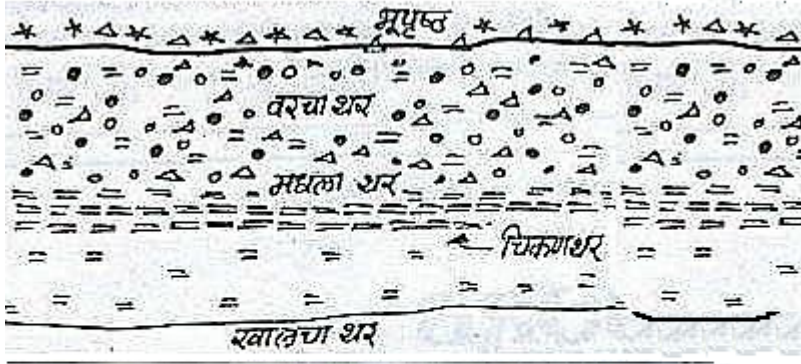 भूपृष्ठ
वरचा थर
मधला थर
चिकणथर
खालचा थर